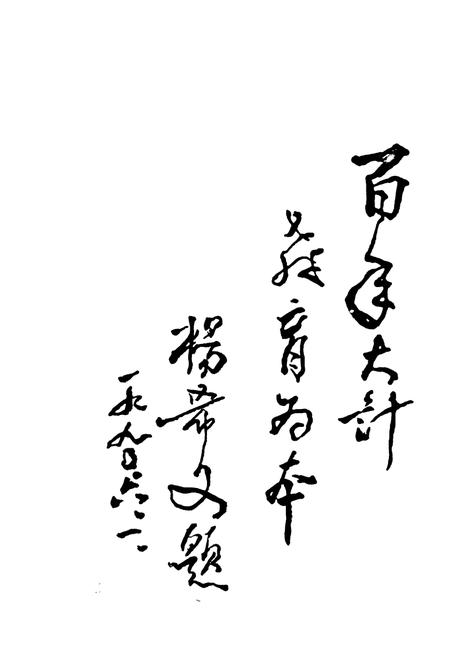 百年大計
教育为本
楊希文題
一九九〇.六.一